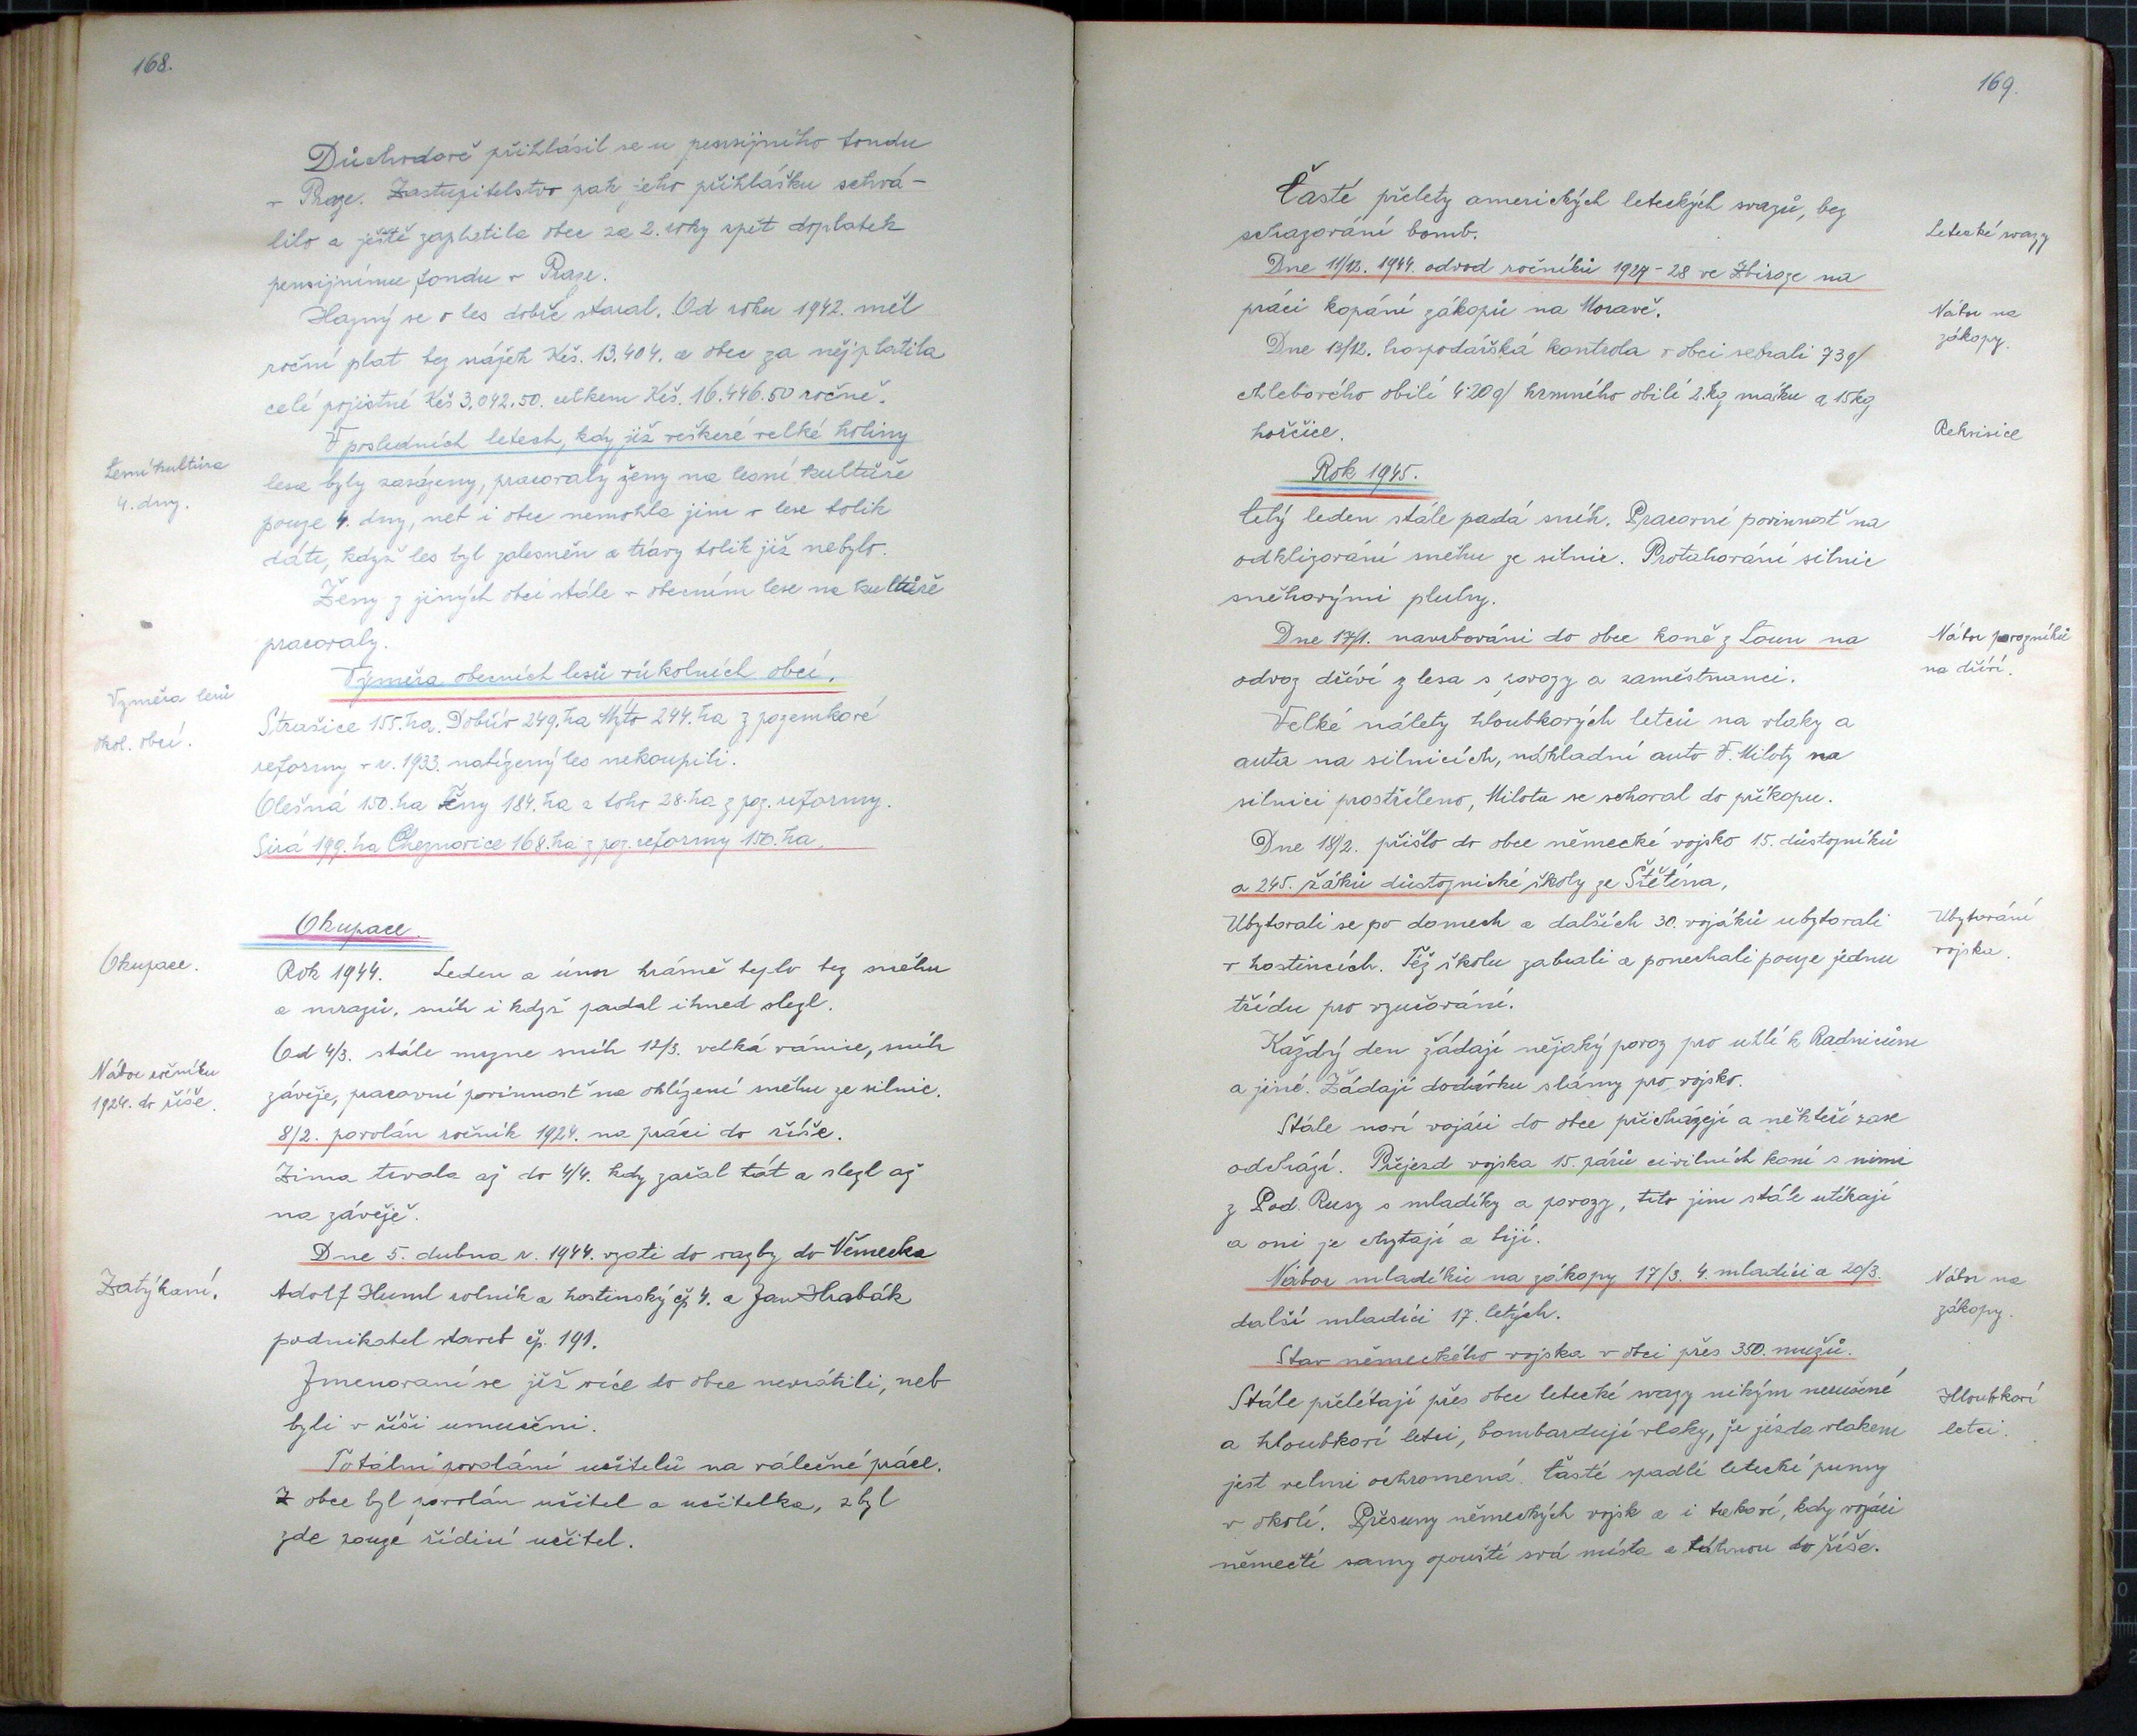 168.
Důchodově přihlásil se u pensijního fondu
v Praze. Zastupitelstvo pak jeho přihlášku schvá-
lilo a ještě zaplatila obec za 2. roky zpět doplatek
pensijnímu fondu v Praze.
Hazný se o les dobře staral. Od roku 1942. měl
roční plat bez nájeh Kčs. 13.404. a obec za něj platila
celé pojistné Kčs 3.042.50. celkem Kčs. 16.446.50 ročně.
V posledních letech, kdy již veškeré velké holiny
Lesní kultura
4. dny.
lesa byly zasázeny, pracovaly ženy na lesní kultůře
pouze 4. dny, neb i obec nemohla jim v lese tolik
dáti, když les byl zalesněn a trávy tolik již nebylo.
Ženy z jiných obcí stále v obecním lese na kultůře
pracovaly.
Výměra obecních lesů vúkolních obcí.
Vyměra lesů
okol. obcí.
Strašice 155. ha. Dobřív 249. ha Mýto 244. ha z pozemkové
reformy v r. 1933. nabízený les nekoupili.
Olešná 150. ha Těny 184. ha z toho 28. ha z poz. reformy.
Sirá 199. ha Cheznovice 168. ha z poz. reformy 150. ha.
Okupace.
Okupace.
Rok 1944. Leden a únor krámě teplo bez sněhu
a mrazů, sníh i když padal ihned slezl.
Od 4/3. stále mrzne sníh 12/3. velká vánice, sníh
Nábor ročníku
1924. do říše.
závěje, pracovní povinnosť na oklízení sněhu ze silnic.
8/2. povolán ročník 1924. na práci do říše.
Zima trvala až do 4/4. kdy začal tát a slezl až
na závěje.
Dne 5. dubna r. 1944. vzati do vazby do Německa
Zatýkaní.
Adolf Huml rolník a hostinský čp 4. a Jan Hrabák
podnikatel staveb čp. 191.
Jmenovaní se již více do obce nevrátili, neb
byli v říši umučeni.
Totální povolání učitelů na válečné práce.
Z obce byl povolán učitel a učitelka, zbyl
zde pouze řídící učitel.
169.
Časté přelety amerických leteckých svazů, bez
Letecké svazy
schazování bomb.
Dne 11/12. 1944. odvod ročníků 1927-28 ve Zbiroze na
práci kopání zákopů na Moravě.
Nábor na
zákopy.
Dne 13/12. hospodářská kontrola v obci sebrali 73 q/
chlebového obilí 4·20 q/ krmného obilí 2. kg máku a 15 kg
hořčice.
Rekvisice
Rok 1945.
Celý leden stále padá sníh. Pracovní povinnosť na
odklizování sněhu ze silnic. Protahování silnic
sněhovými pluhy.
Dne 17/1. navrbováni do obce koně z Loun na
Nábor povozníků
na dříví.
odvoz dříví z lesa s povozy a zaměstnanci.
Velké nálety hloubkových letců na vlaky a
auta na silnicích, nákladní auto F. Miloty na
silnici prostříleno, Milota se schoval do příkopu.
Dne 18/2. přišlo do obce německé vojsko 15. důstojníků
a 245. žáků důstojnické školy ze Štětína,
Ubytovali se po domech a dalších 30. vojáků ubytovali
Ubytování
vojska.
v hostincích. Též školu zabrali a ponechali pouze jednu
třídu pro vyučování.
Každý den žádají nějaký povoz pro uhlí k Radnicům
a jiné. Žádají dodávku slámy pro vojsko.
Stále noví vojáci do obce přicházejí a někteří zase
odchází. Příjezd vojska 15. párů civilních koní s nimi
z Pod. Rusy s mladíky a povozy, tito jim stále utíkají
a oni je chytají a bijí.
Nábor mladíků na zákopy 17/3. 4. mladíci a 20/3.
Nábor na
zákopy.
další mladíci 17. letých.
Stav německého vojska v obci přes 350. mužů.
Stále přelétají přes obec letecké svazy nikým nerušené
Hloubkoví
letci.
a hloubkoví letci, bombardují vlaky, že jízda vlakem
jest velmi ochromená. Časté spadlé letecké pumy
v okolí. Přesuny německých vojsk a i takoví, kdy vojáci
němečtí samy opouští svá místa a táhnou do říše.